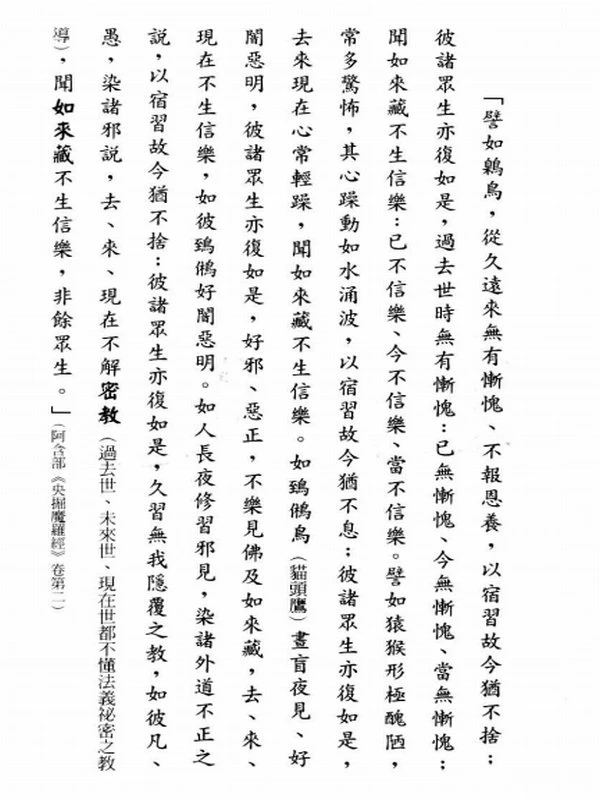 「譬如鵄鳥，從久遠來無有慚愧、不報恩養，以宿習故今猶不捨；
彼諸眾生亦復如是，過去世時無有慚愧：已無慚愧、今無慚愧、當無慚愧；
聞如來藏不生信樂：已不信樂、今不信樂、當不信樂。譬如猿猴形極醜陋，
常多驚怖，其心躁動如水涌波，以宿習故今猶不息；彼諸眾生亦復如是，
去來現在心常輕躁，聞如來藏不生信樂。如鵄鵂鳥（貓頭鷹）晝盲夜見、好
闇惡明，彼諸眾生亦復如是，好邪、惡正，不樂見佛及如來藏，去、來、
現在不生信樂，如彼鵄鵂好闇惡明。如人長夜修習邪見，染諸外道不正之
說，以宿習故今猶不捨；彼諸眾生亦復如是，久習無我隱覆之教，如彼凡、
愚，染諸邪說，去、來、現在不解密教（過去世、未來世、現在世都不懂法義祕密之教
導），聞如來藏不生信樂，非餘眾生。」（阿含部《央掘魔羅經》卷第二）